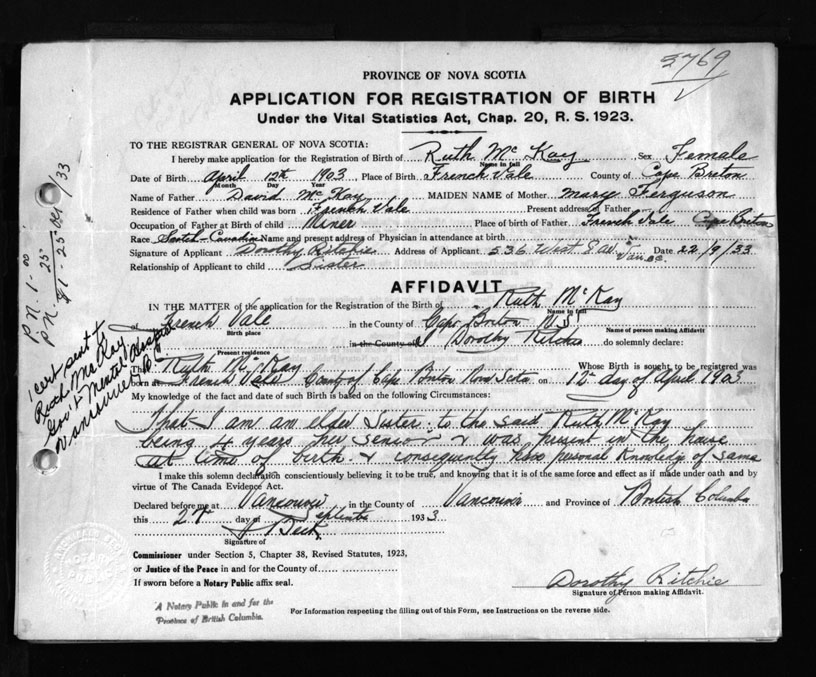 3769
PROVINCE OF NOVA SCOTIA
APPLICATION FOR REGISTRATION OF BIRTH
Under the Vital Statistics Act, Chap. 20, R. S. 1923.
TO THE REGISTRAR GENERAL OF NOVA SCOTIA:
I hereby make application for the Registration of Birth of Ruth McKay Sex Female
Name in full
Date of Birth April 12th 1903 Place of Birth French Vale County of Cape Breton
Month Day Year
Name of Father David McKay MAIDEN NAME of Mother Mary Ferguson
Residence of Father when child was born French Vale Present address of Father
Occupation of Father at Birth of child Miner Place of birth of Father French Vale Cape Breton
Race Scotch-Canadian Name and present address of Physician in attendance at birth
Signature of Applicant Dorothy Ritchie Address of Applicant 536 West 8 Av. Date 22/9/33
Relationship of Applicant to child Sister
AFFIDAVIT
IN THE MATTER of the application for the Registration of the Birth of Ruth McKay
Name in full
of French Vale in the County of Cape Breton N S
Birth place Name of person making Affidavit
in the County of I Dorothy Ritchie do solemnly declare:
Present residence
That Ruth McKay Whose Birth is sought to be registered was
born at French Vale County of Cape Breton Nova Scotia on 12 day of April 1903
My knowledge of the fact and date of such Birth is based on the following Circumstances:
That I am an elder Sister to the said Ruth McKay
being 4 years her senior & was present in the house
at time of birth & consequently have personal knowledge of same
I make this solemn declaration conscientiously believing it to be true, and knowing that it is of the same force and effect as if made under oath and by
virtue of The Canada Evidence Act.
Declared before me at Vancouver in the County of Vancouver and Province of British Columbia
this day of September 1933
Signature of
Commissioner under Section 5, Chapter 38, Revised Statutes, 1923,
or Justice of the Peace in and for the County of
If sworn before a Notary Public affix seal.
Dorothy Ritchie
Signature of Person making Affidavit.
A Notary Public in and for the
Province of British Columbia.
For Information respecting the filling out of this Form, see Instructions on the reverse side.
1 cert sent to
Ruth McKay
Gov't Mental Hospital
Vancouver